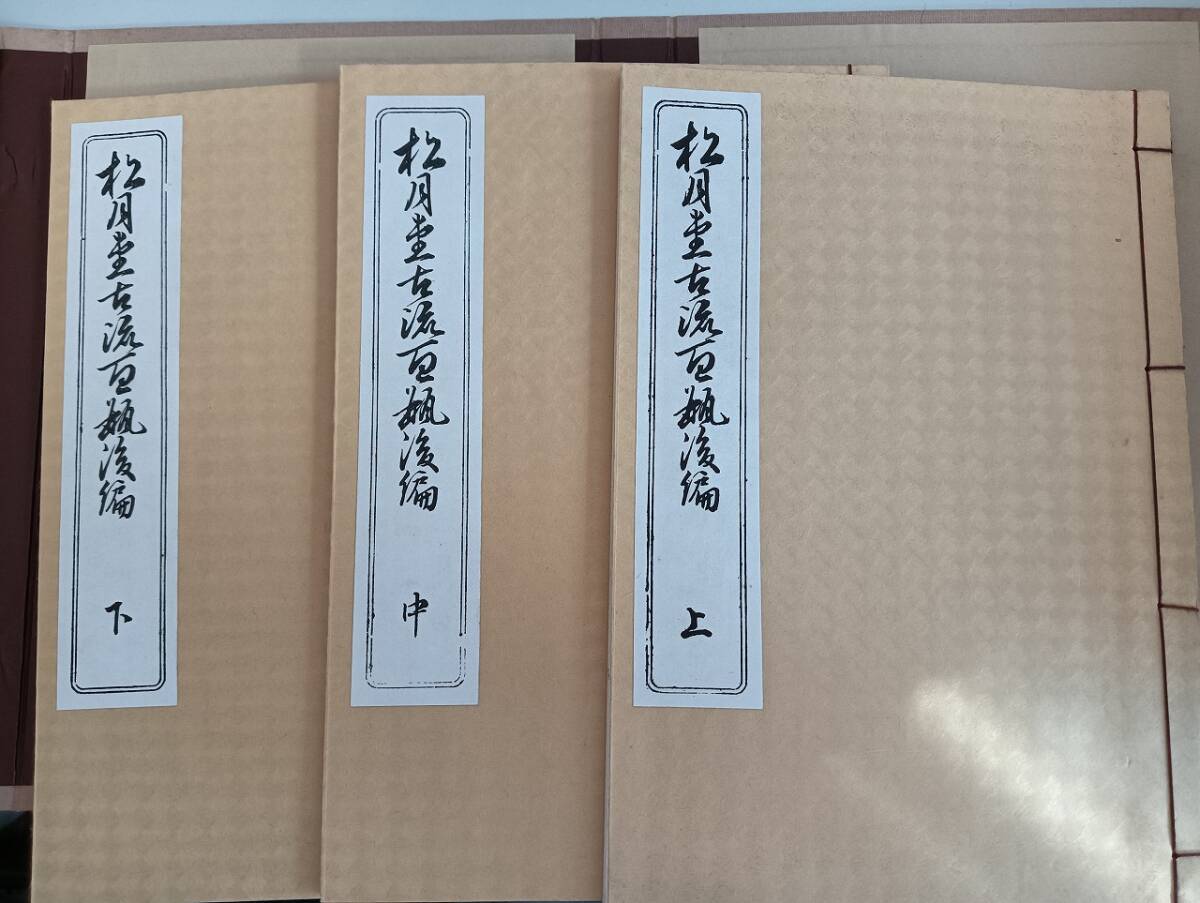 松月堂古流百瓶後編 上
松月堂古流百瓶後編 中
松月堂古流百瓶後編 下